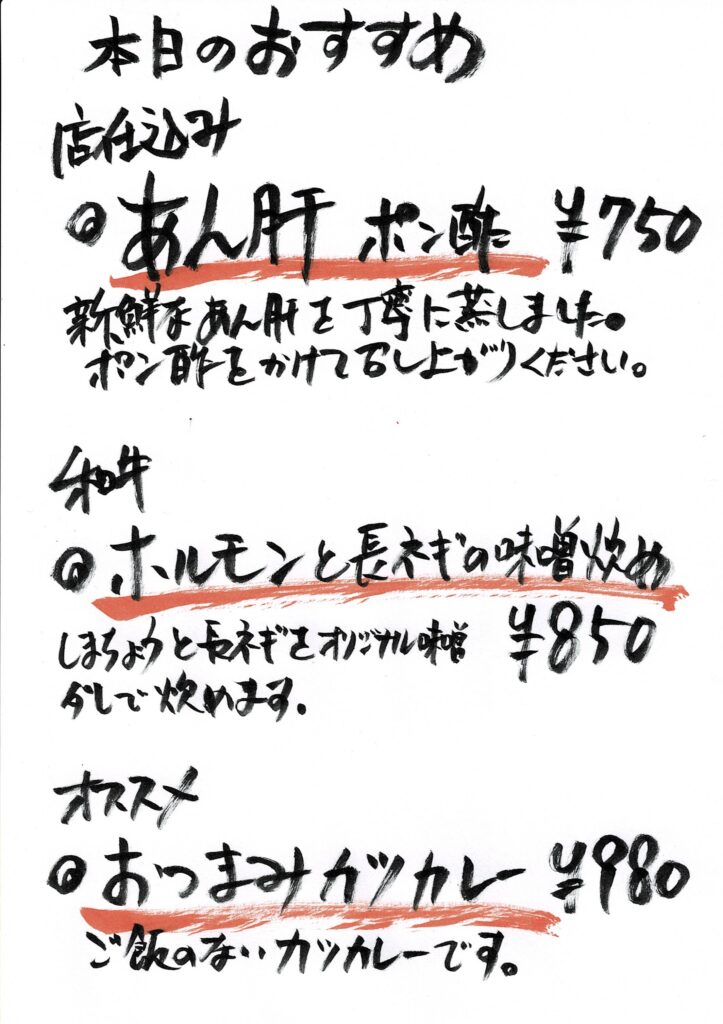 本日のおすすめ
店仕込み
◎あん肝 ポン酢 ¥750
新鮮なあん肝を丁寧に蒸しました。
ポン酢をかけて召し上がりください。
和牛
◎ホルモンと長ネギの味噌炒め
¥850
しまちょうと長ネギをオリジナル味噌
ダレで炒めます。
オススメ
◎おつまみカツカレー ¥980
ご飯のないカツカレーです。